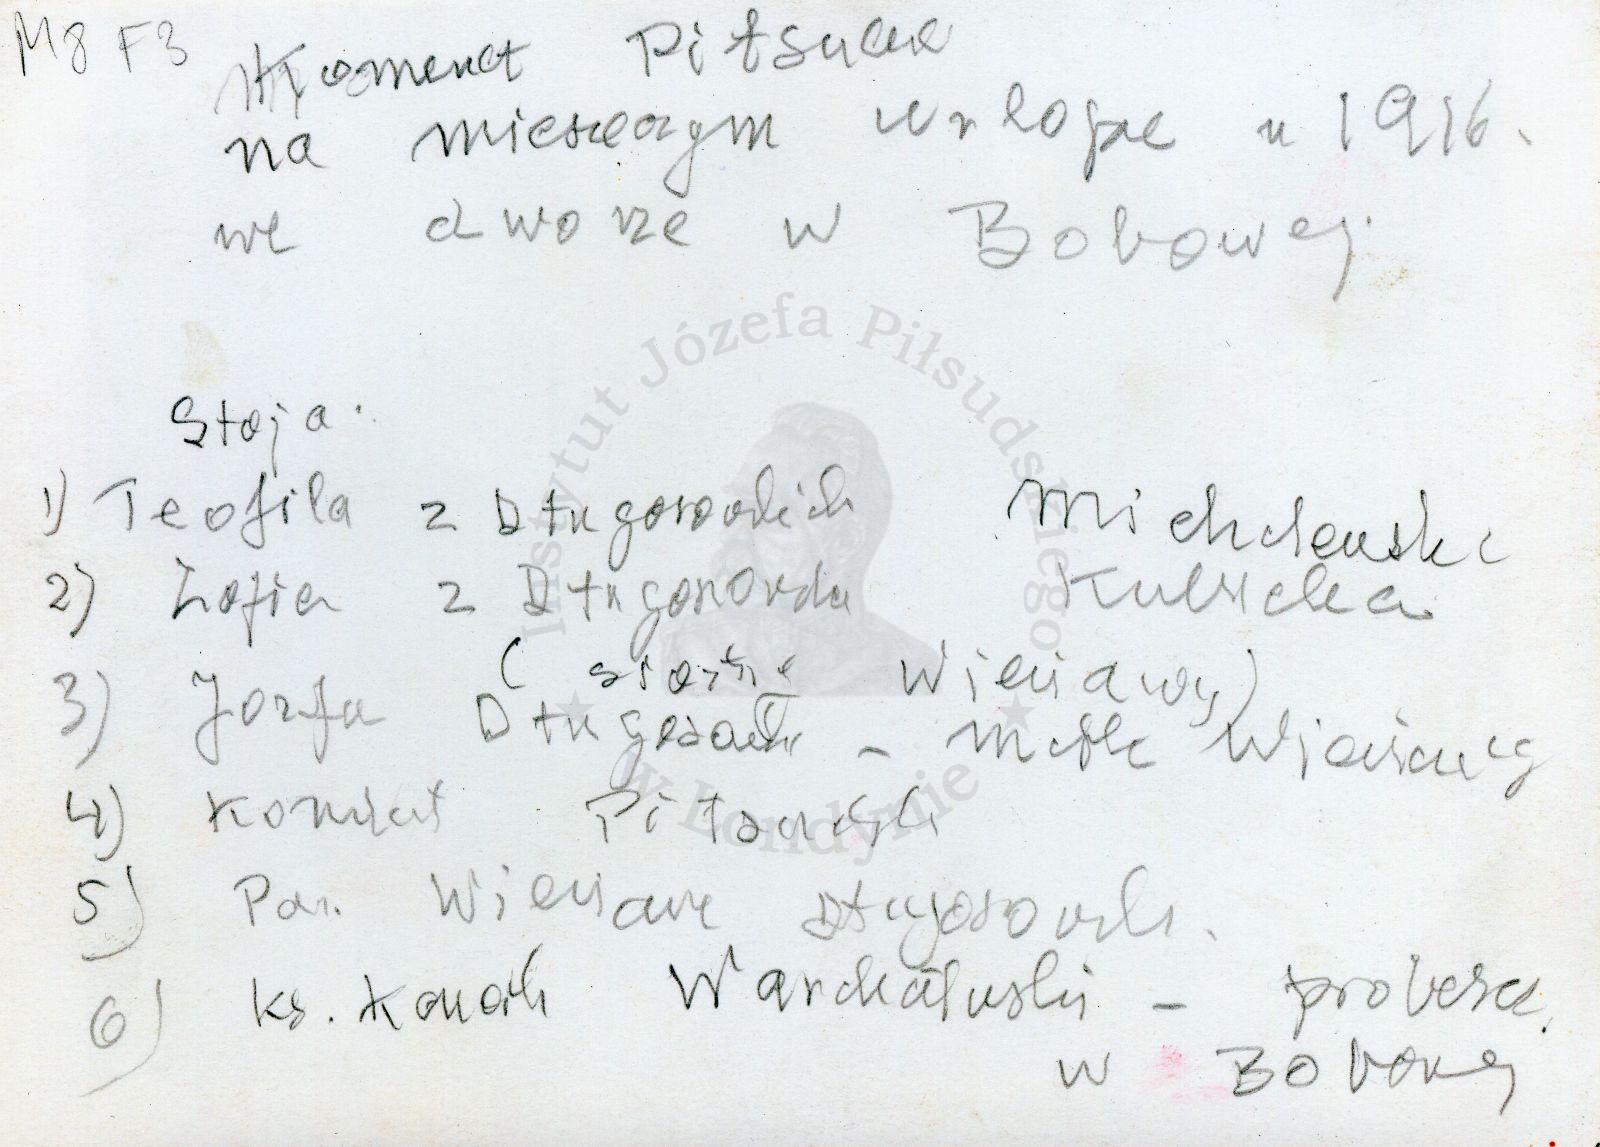 M8 F3
Komend Piłsudk
na miesięcznym urlopie w 1916.
we dworze w Bobowej
Stoja.
1) Teofila z Długoszowskich Michalewska
2) Zofia z Długoszowskich Kubicka
(siostrę Wieniawy)
3) Józefa Długoszowsk - matka Wieniawy
4) Komdat Piłsudski
5) Por. Wieniawa Długoszowski.
6) Ks. Kanonik Warchałowski - proboszcz
w Bobowej
Instytut Józefa Piłsudskiego
w Londynie